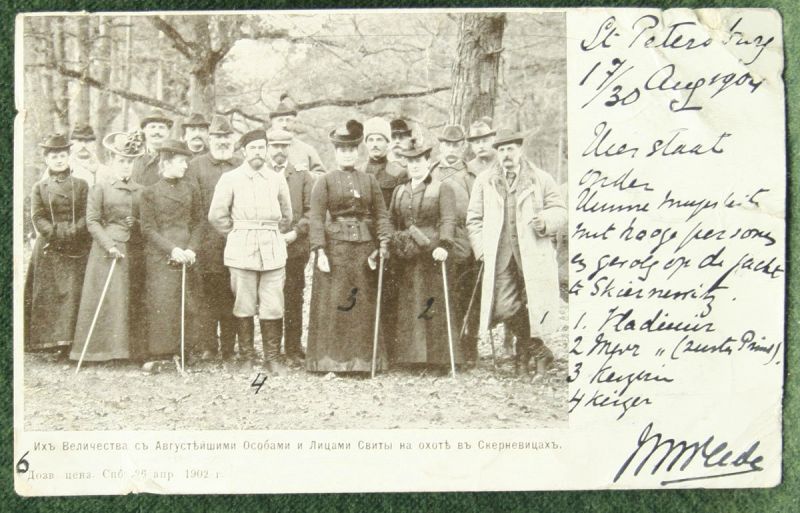 St Petersburg
17/30 Aug 1904
Hier staat
onder
Hunne Majesteit
met hooge personen
en gevolg op de jacht
te Skiernewitz.
1. Vladimir
2 Mevr „ (zuster Prins).
3 Keizerin
4 Keizer
3
2
1
4
Ихъ Величества съ Августѣйшими Особами и Лицами Свиты на охотѣ въ Скерневицахъ.
6
Дозв. ценз. Спб. 26 апр. 1902 г.